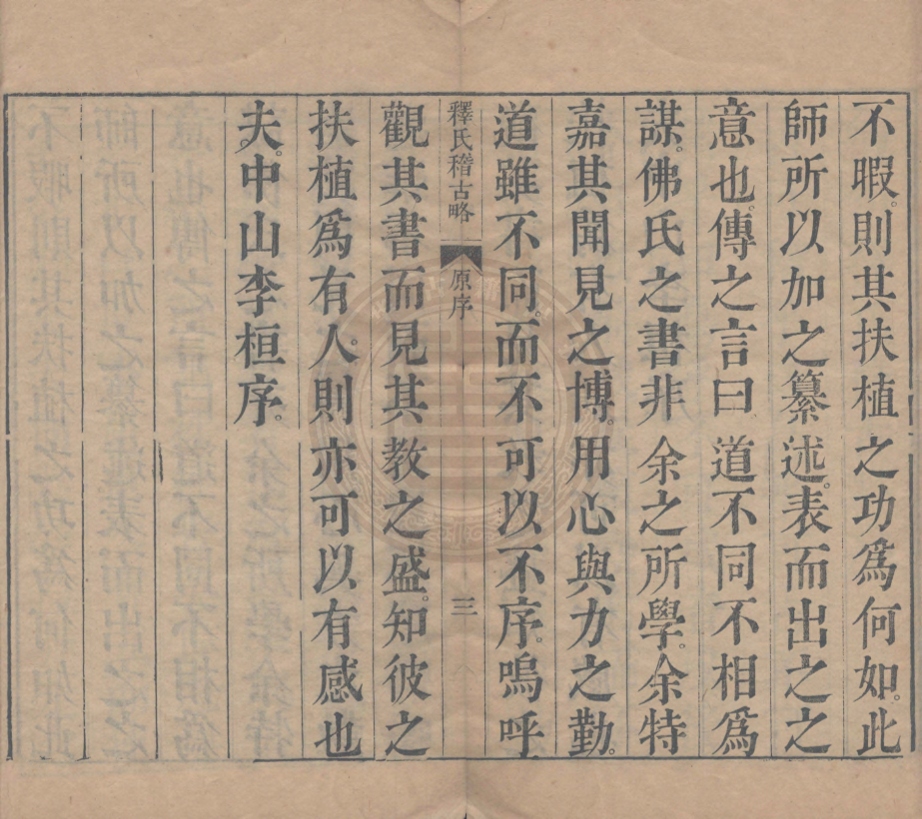 不暇。則其扶植之功爲何如。此
師所以加之纂述。表而出之之
意也。傳之言曰道不同不相爲
謀。佛氏之書非余之所學。余特
嘉其聞見之博。用心與力之勤。
道雖不同。而不可以不序。嗚呼
釋氏稽古略 原序 三
觀其書而見其教之盛。知彼之
扶植爲有人。則亦可以有感也
夫。中山李桓序。